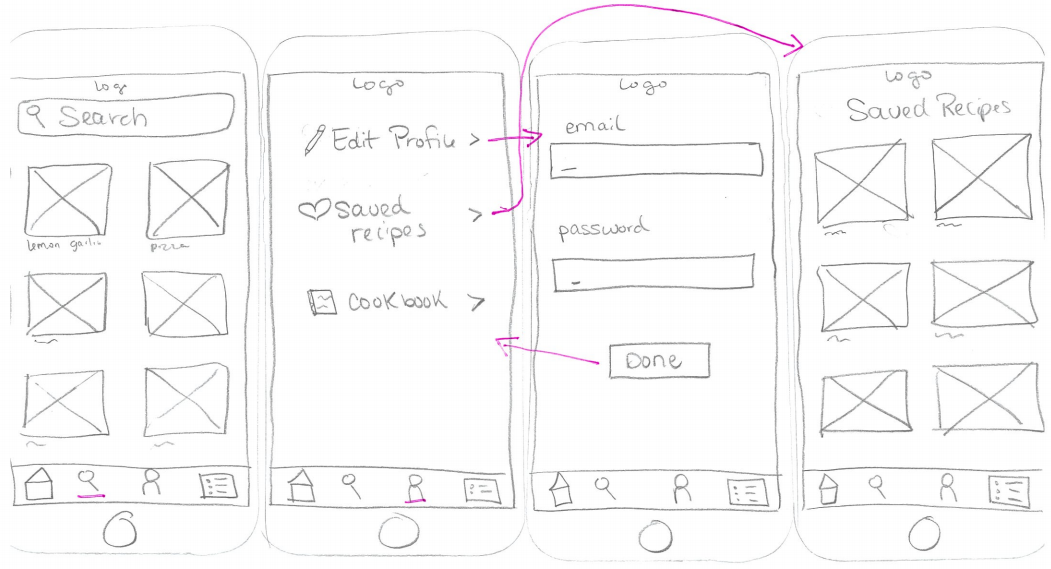 Logo
Search
lemon garlic
pizza
Logo
Edit Profile >
Saved >
recipes
Cookbook >
Logo
email
password
Done
Logo
Saved Recipes